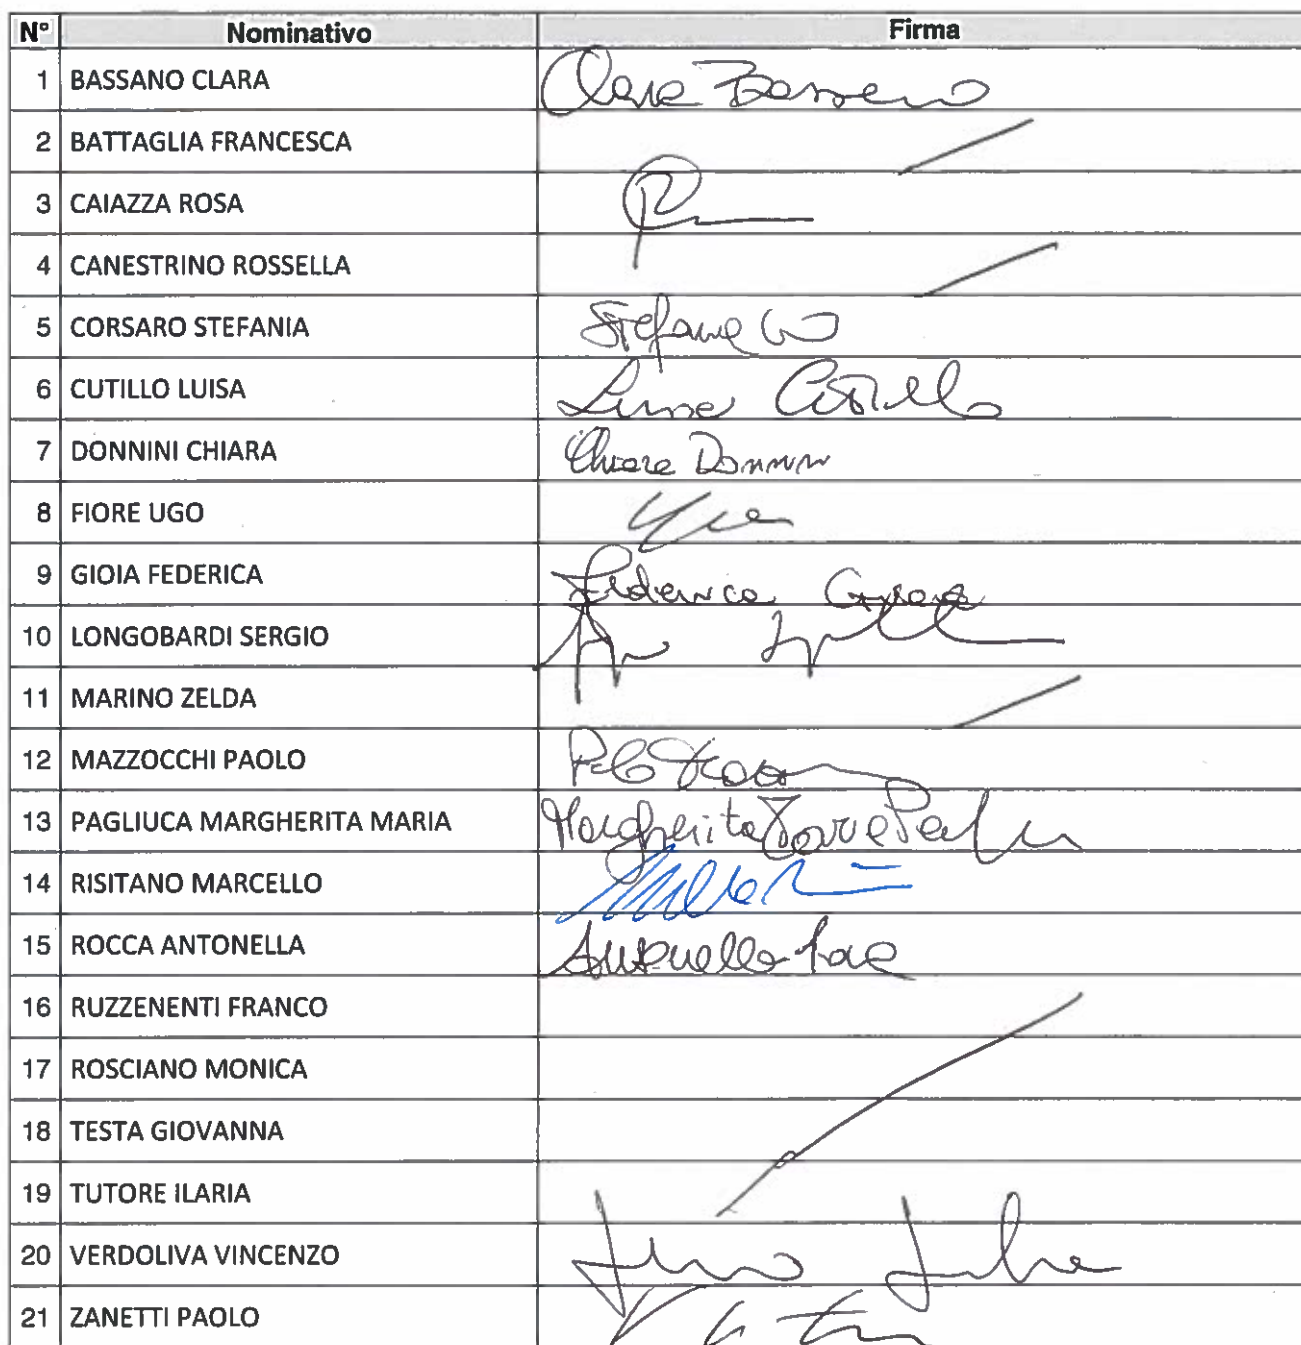 N° Nominativo Firma
1 BASSANO CLARA Clara Bassano
2 BATTAGLIA FRANCESCA
3 CAIAZZA ROSA
4 CANESTRINO ROSSELLA
5 CORSARO STEFANIA Stefania
6 CUTILLO LUISA Luisa Cutillo
7 DONNINI CHIARA Chiara Donnini
8 FIORE UGO
9 GIOIA FEDERICA Federica Gioia
10 LONGOBARDI SERGIO
11 MARINO ZELDA
12 MAZZOCCHI PAOLO
13 PAGLIUCA MARGHERITA MARIA Margherita
14 RISITANO MARCELLO
15 ROCCA ANTONELLA Antonella
16 RUZZENENTI FRANCO
17 ROSCIANO MONICA
18 TESTA GIOVANNA
19 TUTORE ILARIA
20 VERDOLIVA VINCENZO
21 ZANETTI PAOLO